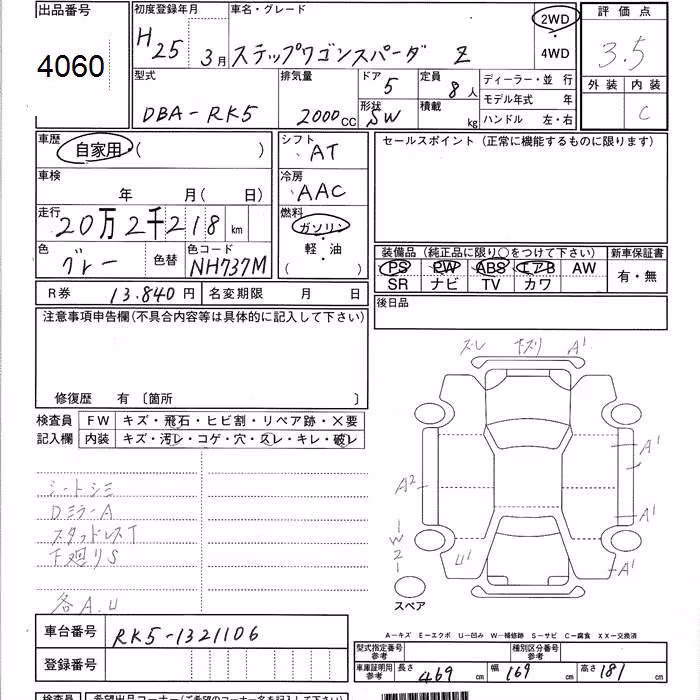 出品番号
4060
初度登録年月
H25 3月
車名・グレード
ステップワゴンスパーダ Z
2WD
・
4WD
評価点
3.5
外装 内装
C
型式
DBA-RK5
排気量
2000cc
ドア
5
形状
SW
定員
8人
積載
kg
ディーラー・並 行
モデル年式 年
ハンドル 左・右
車歴
自家用・( )
車検
年 月( 日)
走行
20万2千218 km
色
グレー
色替
色コード
NH737M
R券 13.840円
名変期限 月 日
シフト
AT
冷房
AAC
燃料
ガソリン
・
軽・油
( )
セールスポイント (正常に機能するものに限ります)
装備品 (純正品に限り○をつけて下さい)
新車保証書
PS PW ABS エアB AW
SR ナビ TV カワ
有・無
後日品
注意事項申告欄(不具合内容等は具体的に記入して下さい)
修復歴 有 〔箇所 〕
検査員
記入欄
FW キズ・飛石・ヒビ割・リペア跡・X要
内装 キズ・汚レ・コゲ・穴・スレ・キレ・破レ
シートシミ
DミラーA
スタッドレスT
下廻りS
各A.U
ズレ
A1
A1
A2
A1
A1
U1
W2
スペア
車台番号 RK5-1321106
登録番号
A-キズ E-エクボ U-凹み W-補修跡 S-サビ C-腐食 XX-交換済
型式指定番号
参考
種別区分番号
参考
車庫証明用
参考
長さ 469 cm 幅 169 cm 高さ 181 cm
検査員
希望出品コーナー(ご希望のコーナー名を記入下さい)